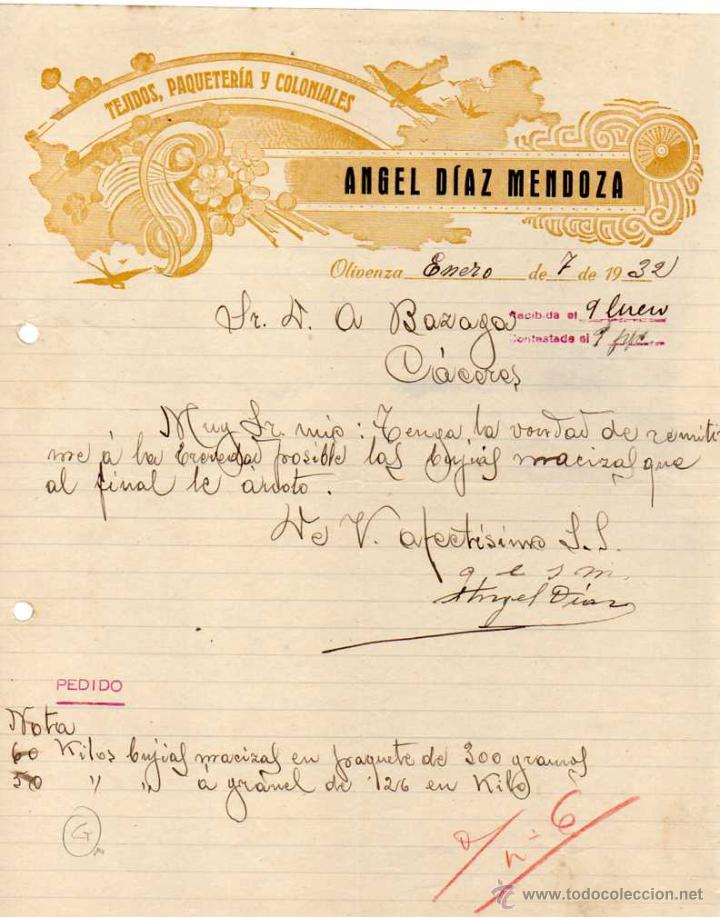 TEJIDOS, PAQUETERÍA Y COLONIALES
ANGEL DÍAZ MENDOZA
Olivenza Enero de 7 de 1932
Sr. D. A Bazaga
Recibida el 9 Enero
Contestada el 9
Cáceres
Muy Sr. mio: Tenga la vondad de remitir
me á la brevedad posible las bujias macizas que
al final le anoto.
De V. afectísimo S.S.
q e s m.
Angel Díaz
PEDIDO
Nota
60 Kilos bujias macizas en paquete de 300 gramos
50 " " á granel de 126 en Kilo
G
6
www.todocoleccion.net